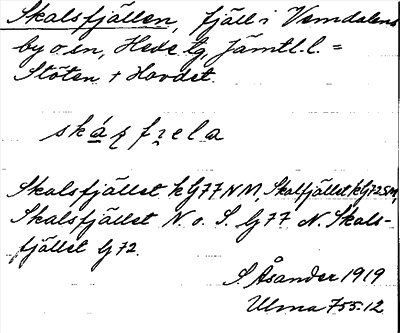 Skalsfjällen, fjäll i Vemdalens
by o. sn, Hede tg, Jämtl. l. =
Stöten + Hovdet.
Skalsfjället k G77 N M, Skalfjället k G72 SM,
Skalsfjället N. o. S. G77. N. Skals-
fjället G72.
S. Åsander 1919
Ulma 755:12